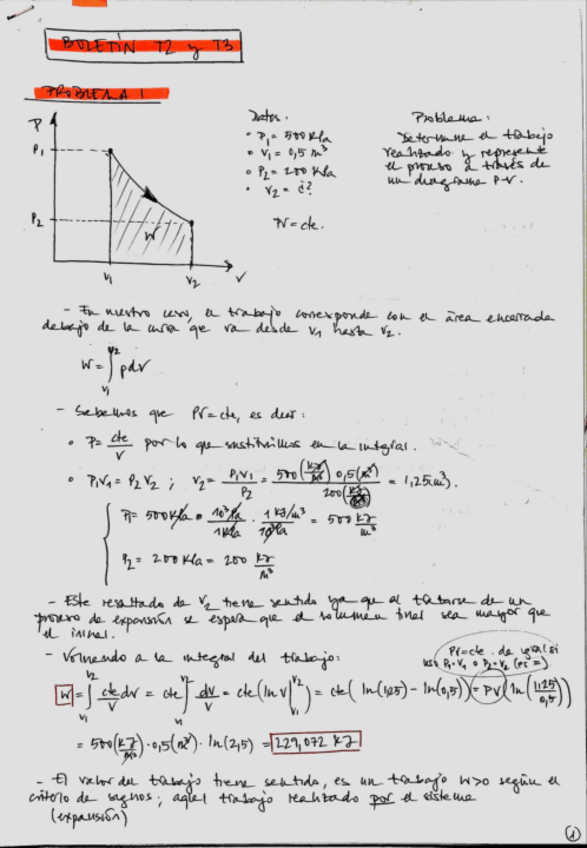 BOLETÍN T2 y T3
PROBLEMA 1
P
P1
P2
W
V1
V2
V
Datos.
• P1 = 500 KPa
• V1 = 0,5 m³
• P2 = 200 KPa
• V2 = ¿?
PV = cte.
Problema:
Determine el trabajo
realizado y represente
el proceso a través de
un diagrama P-V.
- En nuestro caso, el trabajo corresponde con el área encerrada
debajo de la curva que va desde V1 hasta V2.
W = ∫_{V1}^{V2} pdV
- Sabemos que PV = cte, es decir:
• P = cte/V por lo que sustituimos en la integral.
• P1V1 = P2V2 ; V2 = P1V1/P2 = 500 (KJ/m³) 0,5 (m³) / 200 (KJ/m³) = 1,25 (m³).
P1 = 500 KPa • 10³ Pa/1 KPa · 1 KJ/m³/10³ Pa = 500 KJ/m³
P2 = 200 KPa = 200 KJ/m³
- Este resultado de V2 tiene sentido ya que al tratarse de un
proceso de expansión se espera que el volumen final sea mayor que
el inicial.
- Volviendo a la integral del trabajo:
PV = cte. da igual si
uso P1·V1 o P2·V2 (es =)
W = ∫_{V1}^{V2} cte/V dV = cte ∫_{V1}^{V2} dV/V = cte (ln V |_{V1}^{V2}) = cte (ln(1,25) - ln(0,5)) = PV (ln (1,25/0,5))
= 500 (KJ/m³) · 0,5 (m³) · ln(2,5) = 229,072 KJ
- El valor del trabajo tiene sentido, es un trabajo W>0 según el
criterio de signos; aquel trabajo realizado por el sistema
(expansión)
1